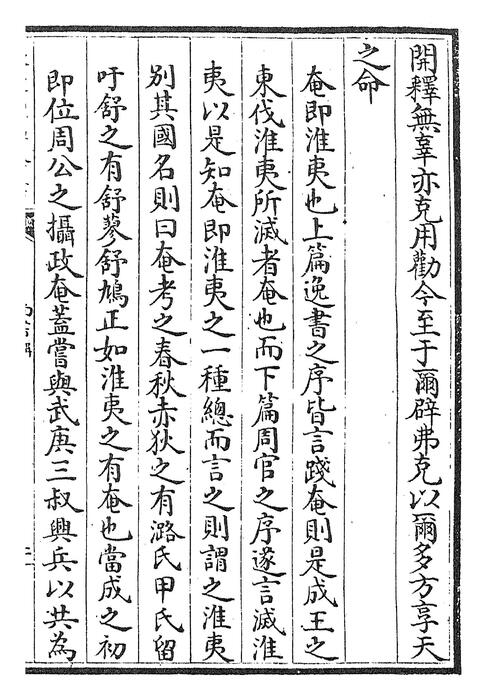 開釋無辜亦克用勸今至于爾辟弗克以爾多方享天
之命
奄即淮夷也上篇逸書之序皆言踐奄則是成王之
東伐淮夷所滅者奄也而下篇周官之序遂言滅淮
夷以是知奄即淮夷之一種總而言之則謂之淮夷
別其國名則曰奄考之春秋赤狄之有潞氏甲氏留
吁舒之有舒蓼舒鳩正如淮夷之有奄也當成之初
即位周公之攝政奄蓋嘗與武庚三叔興兵以共為